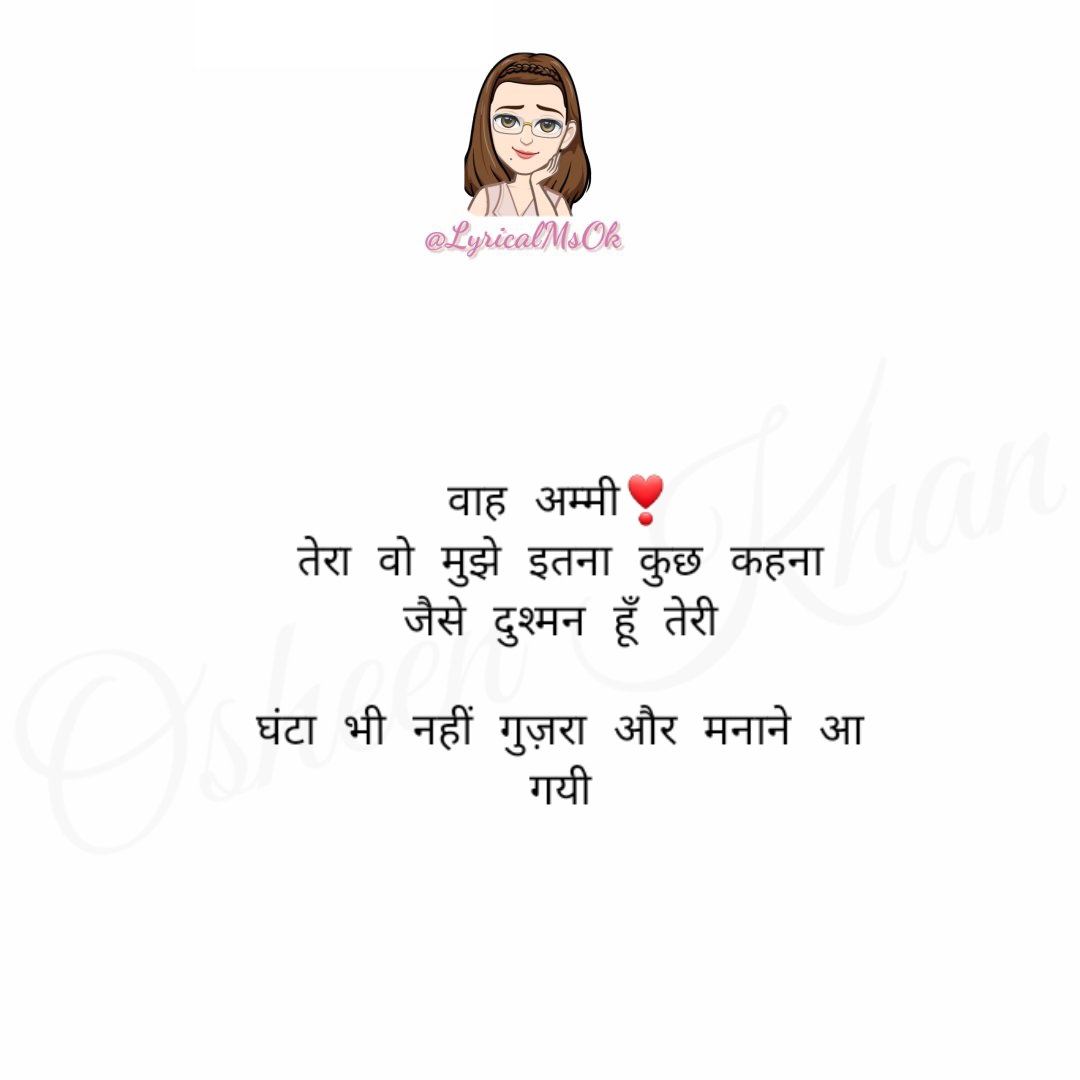 @LyricalMsOk
वाह अम्मी❣️
तेरा वो मुझे इतना कुछ कहना
जैसे दुश्मन हूँ तेरी
घंटा भी नहीं गुज़रा और मनाने आ
गयी
Osheen Khan